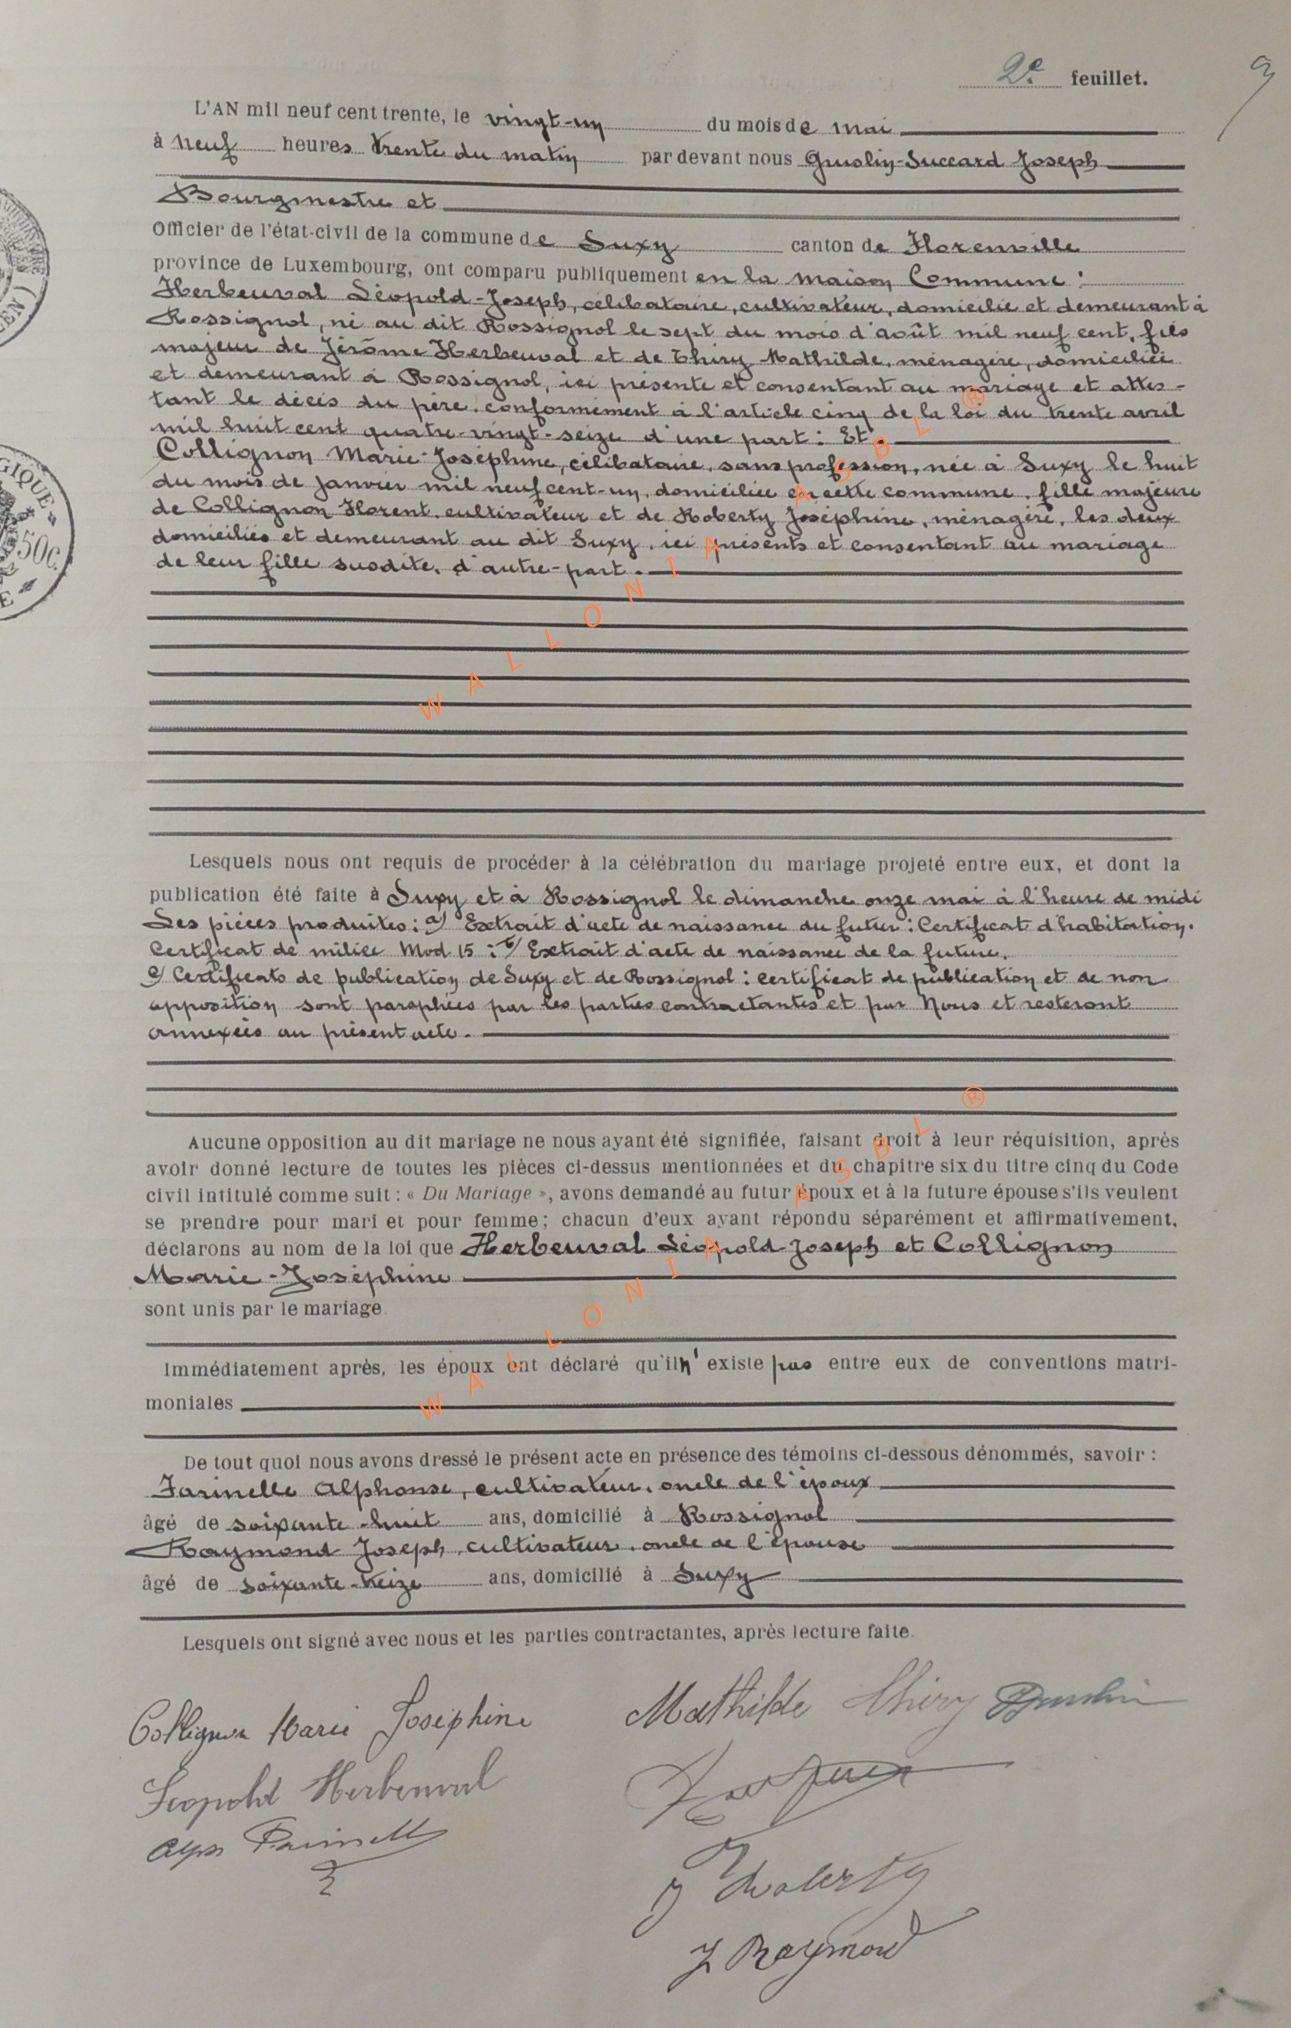 2e feuillet.
9
L'AN mil neuf cent trente, le vingt-un du mois de mai
à neuf heures trente du matin par devant nous Joseph
Bourgmestre et
Officier de l'état-civil de la commune de Suxy canton de Florenville
province de Luxembourg, ont comparu publiquement en la maison Commune :
Herbeuval Léopold-Joseph, célibataire, cultivateur, domicilié et demeurant à
Rossignol, né au dit Rossignol le sept du mois d'août mil neuf cent, fils
majeur de Jérôme Herbeuval et de Thiry Mathilde, ménagère, domiciliée
et demeurant à Rossignol, ici présente et consentant au mariage et attes-
tant le décès du père, conformément à l'article cinq de la loi du trente avril
mil huit cent quatre-vingt-seize d'une part : Et
Collignon Marie-Joséphine, célibataire, sans profession, née à Suxy le huit
du mois de janvier mil neuf cent-un, domiciliée en cette commune, fille majeure
de Collignon Florent, cultivateur et de Roberty Joséphine, ménagère, les deux
domiciliés et demeurant au dit Suxy, ici présents et consentant au mariage
de leur fille susdite, d'autre-part.
Lesquels nous ont requis de procéder à la célébration du mariage projeté entre eux, et dont la
publication été faite à Suxy et à Rossignol le dimanche onze mai à l'heure de midi
Les pièces produites : a/ Extrait d'acte de naissance du futur : Certificat d'habitation.
Certificat de milice Mod 15 : b/ Extrait d'acte de naissance de la future.
c/ Certificats de publication de Suxy et de Rossignol : certificat de publication et de non
opposition sont paraphées par les parties contractantes et par Nous et resteront
annexées au présent acte.
Aucune opposition au dit mariage ne nous ayant été signifiée, faisant droit à leur réquisition, après
avoir donné lecture de toutes les pièces ci-dessus mentionnées et du chapitre six du titre cinq du Code
civil intitulé comme suit : « Du Mariage », avons demandé au futur époux et à la future épouse s'ils veulent
se prendre pour mari et pour femme ; chacun d'eux ayant répondu séparément et affirmativement,
déclarons au nom de la loi que Herbeuval Léopold-Joseph et Collignon
Marie-Joséphine
sont unis par le mariage.
Immédiatement après, les époux ont déclaré qu'il n'existe pas entre eux de conventions matri-
moniales
De tout quoi nous avons dressé le présent acte en présence des témoins ci-dessous dénommés, savoir :
Farinelle Alphonse, cultivateur, oncle de l'époux
âgé de soixante-huit ans, domicilié à Rossignol
Raymond Joseph, cultivateur, oncle de l'épouse
âgé de soixante-treize ans, domicilié à Suxy
Lesquels ont signé avec nous et les parties contractantes, après lecture faite.
Collignon Marie Joséphine
Mathilde Thiry
Léopold Herbeuval
J Roberty
J Raymond
GIQUE
50c.
WALLONIA ASBL ®
WALLONIA ASBL ®